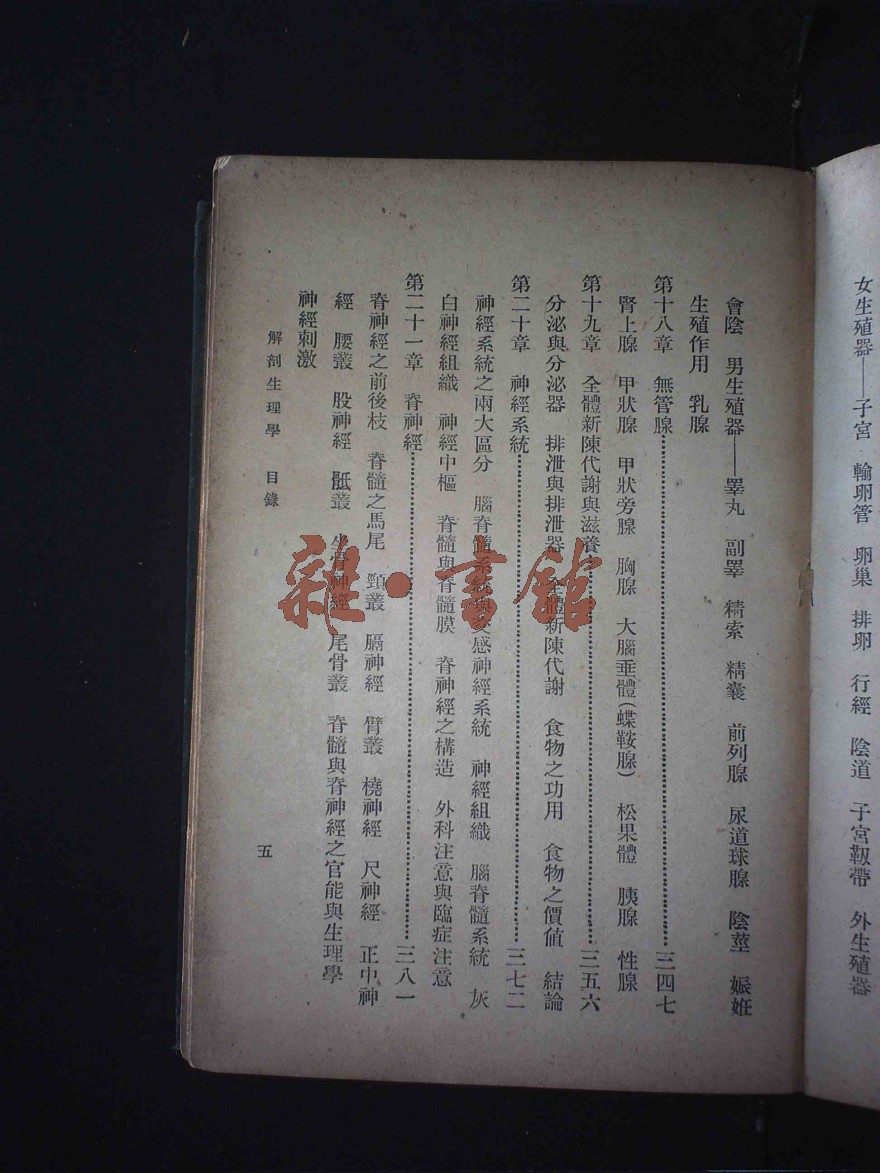 女生殖器——子宮　輸卵管　卵巢　排卵　行經　陰道　子宮靱帶　外生殖器
會陰　男生殖器——睪丸　副睪　精索　精囊　前列腺　尿道球腺　陰莖　娠姙
生殖作用　乳腺
第十八章　無管腺……三四七
腎上腺　甲狀腺　甲狀旁腺　胸腺　大腦垂體(蝶鞍腺)　松果體　胰腺　性腺
第十九章　全體新陳代謝與滋養……三五六
分泌與分泌器　排泄與排泄器　全體新陳代謝　食物之功用　食物之價値　結論
第二十章　神經系統……三七二
神經系統之兩大區分　腦脊髓系統與交感神經系統　神經組織　腦脊髓系統　灰
白神經組織　神經中樞　脊髓與脊髓膜　脊神經之構造　外科注意與臨症注意
第二十一章　脊神經……三八一
脊神經之前後枝　脊髓之馬尾　頸叢　膈神經　臂叢　橈神經　尺神經　正中神
經　腰叢　股神經　骶叢　坐骨神經　尾骨叢　脊髓與脊神經之官能與生理學
神經刺激
解剖生理學　目錄
五
雜·書館